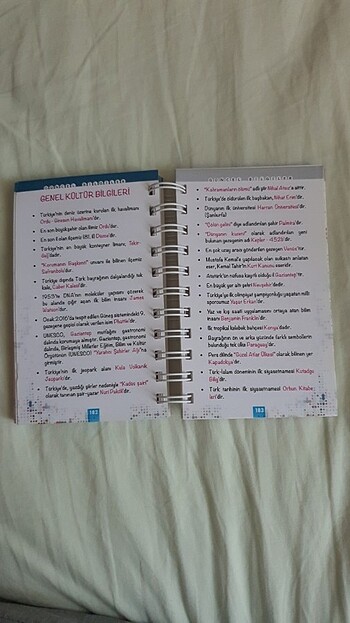 GENEL KÜLTÜR BİLGİLERİ
Türkiye'nin deniz üzerine kurulan ilk havalimanı
Ordu - Giresun Havalimanı'dır.
En son büyükşehir olan ilimiz Ordu'dur.
En son il olan ilçemiz (81. il) Düzce'dir.
Türkiye'nin en büyük konteyner limanı, Tekir-
dağ'dadır.
"Korumanın Başkenti" unvanı ile bilinen ilçemiz
Safranbolu'dur.
Türkiye dışında Türk bayrağının dalgalandığı tek
kale, Caber Kalesi'dir.
1953'te DNA'nın moleküler yapısını çözerek
bu alanda çığır açan ilk bilim insanı James
Watson'dır.
Ocak 2016'da tespit edilen Güneş sistemindeki 9.
gezegene geçici olarak verilen isim
UNESCO, Gaziantep mutfağını gastronomi
dalında korumaya almıştır. Gaziantep, gastronomi
dalında, Birleşmiş Milletler Eğitim, Bilim ve Kültür
Örgütünün (UNESCO) "Yaratıcı Şehirler Ağı"na
girmiştir.
Türkiye'nin ilk jeopark alanı Kula Volkanik
Jeoparkı'dır.
Türkiye'de, yazdığı şiirler nedeniyle "Kudüs şairi"
olarak tanınan şair-yazar Nuri Pakdil'dir.
182
"Kahramanların ölümü" adlı şiir Nihal Atsız'a aittir.
Türkiye'de öldürülen ilk başbakan, Nihat Erim'dir.
Dünyanın ilk üniversitesi Harran Üniversitesi'dir.
(Şanlıurfa)
"Çölün gelini" diye adlandırılan şehir Palmira'dır.
"Dünyanın kuzeni" olarak adlandırılan yeni
bulunan gezegenin adı Kepler - 452b'dir.
En çok uzay aracı gönderilen gezegen Venüs'tür.
Mustafa Kemal'e yapılacak olan suikasti anlatan
eser, Kemal Tahir'in Kurt Kanunu eseridir.
Atatürk'ün nüfusa kayıtlı olduğu il Gaziantep'tir.
En büyük yer altı şehri Nevşehir'dedir.
Türkiye'de olimpiyat şampiyonluğu yaşatan milli
sporcumuz Yaşar Erkan'dır.
Yaz ve kış saati uygulamasını ortaya atan bilim
insanı Benjamin Franklin'dir.
İlk tropikal kelebek bahçesi Konya dadır.
Bayrağının ön ve arka yüzünde farklı sembollerin
bulunduğu tek ülke Paraguay'dır.
Pers dilinde "Güzel Atlar Ülkesi" olarak bilinen yer
Kapadokya'dır.
Türk-İslam döneminin ilk siyasetnamesi Kutadgu
Bilig'dir.
Türk tarihinin ilk siyasetnamesi Orhun Kitabe-
leri'dir.
183